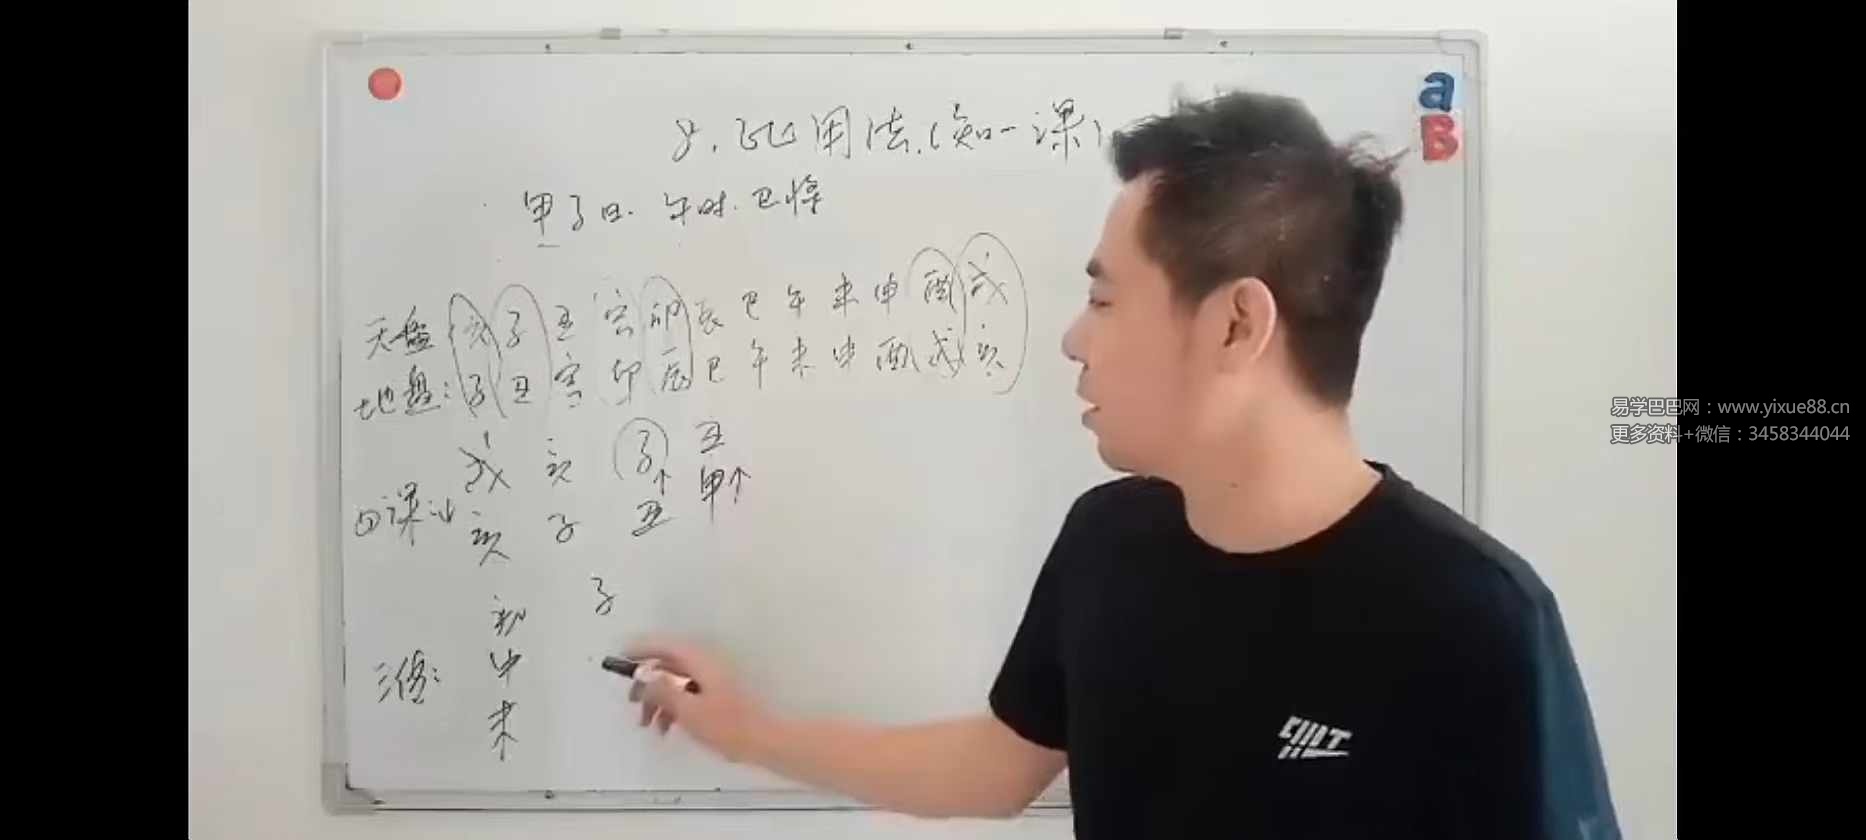 8.比用法.(知一课)
甲子日.午时.巳将
天盘 亥子丑寅卯辰巳午未申酉戌
地盘:子丑寅卯辰巳午未申酉戌亥
戌 亥 子 丑
四课: 亥 子 丑 甲
初 子
三传: 中
末
a
B
易学巴巴网：www.yixue88.cn
更多资料+微信：3458344044